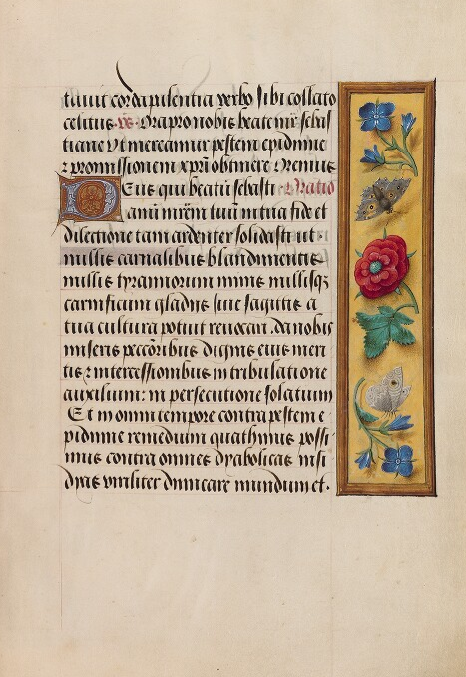 tauit corda pestilentia verbo sibi collato
celitus. ℣. Ora pro nobis beate mr̄ sebas
tiane Ut mereamur pestem epidimie
⁊ promissionem xp̄i obtinere Oremus
Deus qui beatū sebasti- Oratio
anū mr̄em tuū in tua fide et
dilectione tam ardenter solidasti ut
nullis carnalibus blandimentis
nullis tyrannorum minis nullisqꝫ
carnificum gladijs siue sagittis a
tua cultura potuit reuocari .da nobis
miseris peccōribus dignis eius meri
tis ⁊ intercessionibus in tribulatione
auxilium: in persecutione solatium
Et in omni tempore contra pestem e
pidimie remedium quathinus possi
mus contra omnes dyabolicas insi
dyas viriliter dimicare mundum et.